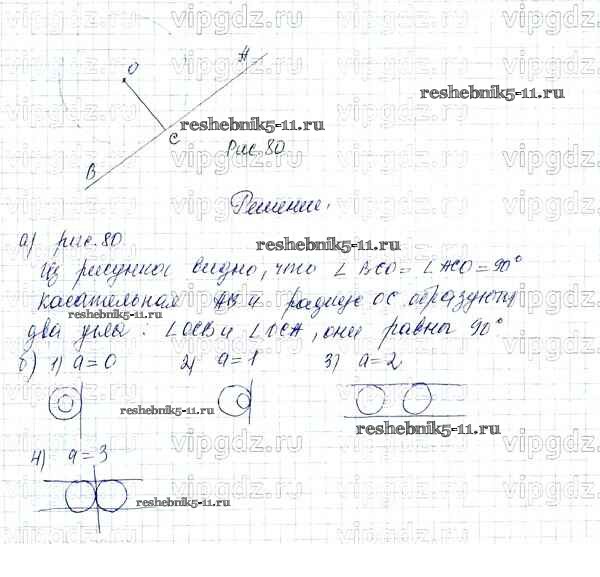 vipgdz.ru vipgdz.ru
O A
reshebnik5-11.ru
reshebnik5-11.ru
C
Рис.80
B
vipgdz.ru vipgdz.ru
Решение.
а) рис.80.
reshebnik5-11.ru
Из рисунка видно, что ∠BCO = ∠ACO = 90°
касательная AB и радиус OC образуют
reshebnik5-11.ru
два угла: ∠OCB и ∠OCA, они равны 90°
vipgdz.ru vipgdz.ru
б) 1) a=0 2) a=1 3) a=2
reshebnik5-11.ru
reshebnik5-11.ru
vipgdz.ru vipgdz.ru
4) a=3
reshebnik5-11.ru
vipgdz.ru vipgdz.ru